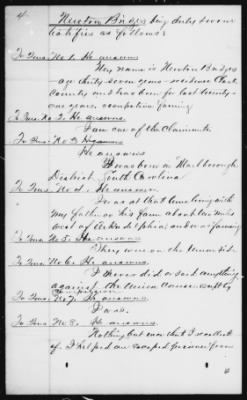 4
Newton Bridges being duly sworn
testifies as follows:
To Ques. No 1. He answers
My name is Newton Bridges
age thirty seven years - residence
County and have been for last twenty-
one years, occupation farming
To Ques. No 2. He answers
I am one of the Claimants
To Ques. No 3. He answers
I was born in Marlborough
District South Carolina
To Ques. No 4. He answers
I was at that time living with
My father on his farm about six miles
west of farming
To Ques. No 5. He answers
They were on the Union side
To Ques. No 6. He answers
I never did or said anything
against the Union cause except by
To Ques. No 7. He answers
I was.
To Ques. No 8. He answers
Nothing but was that I recollect
of. I helped an escaped prisoner from